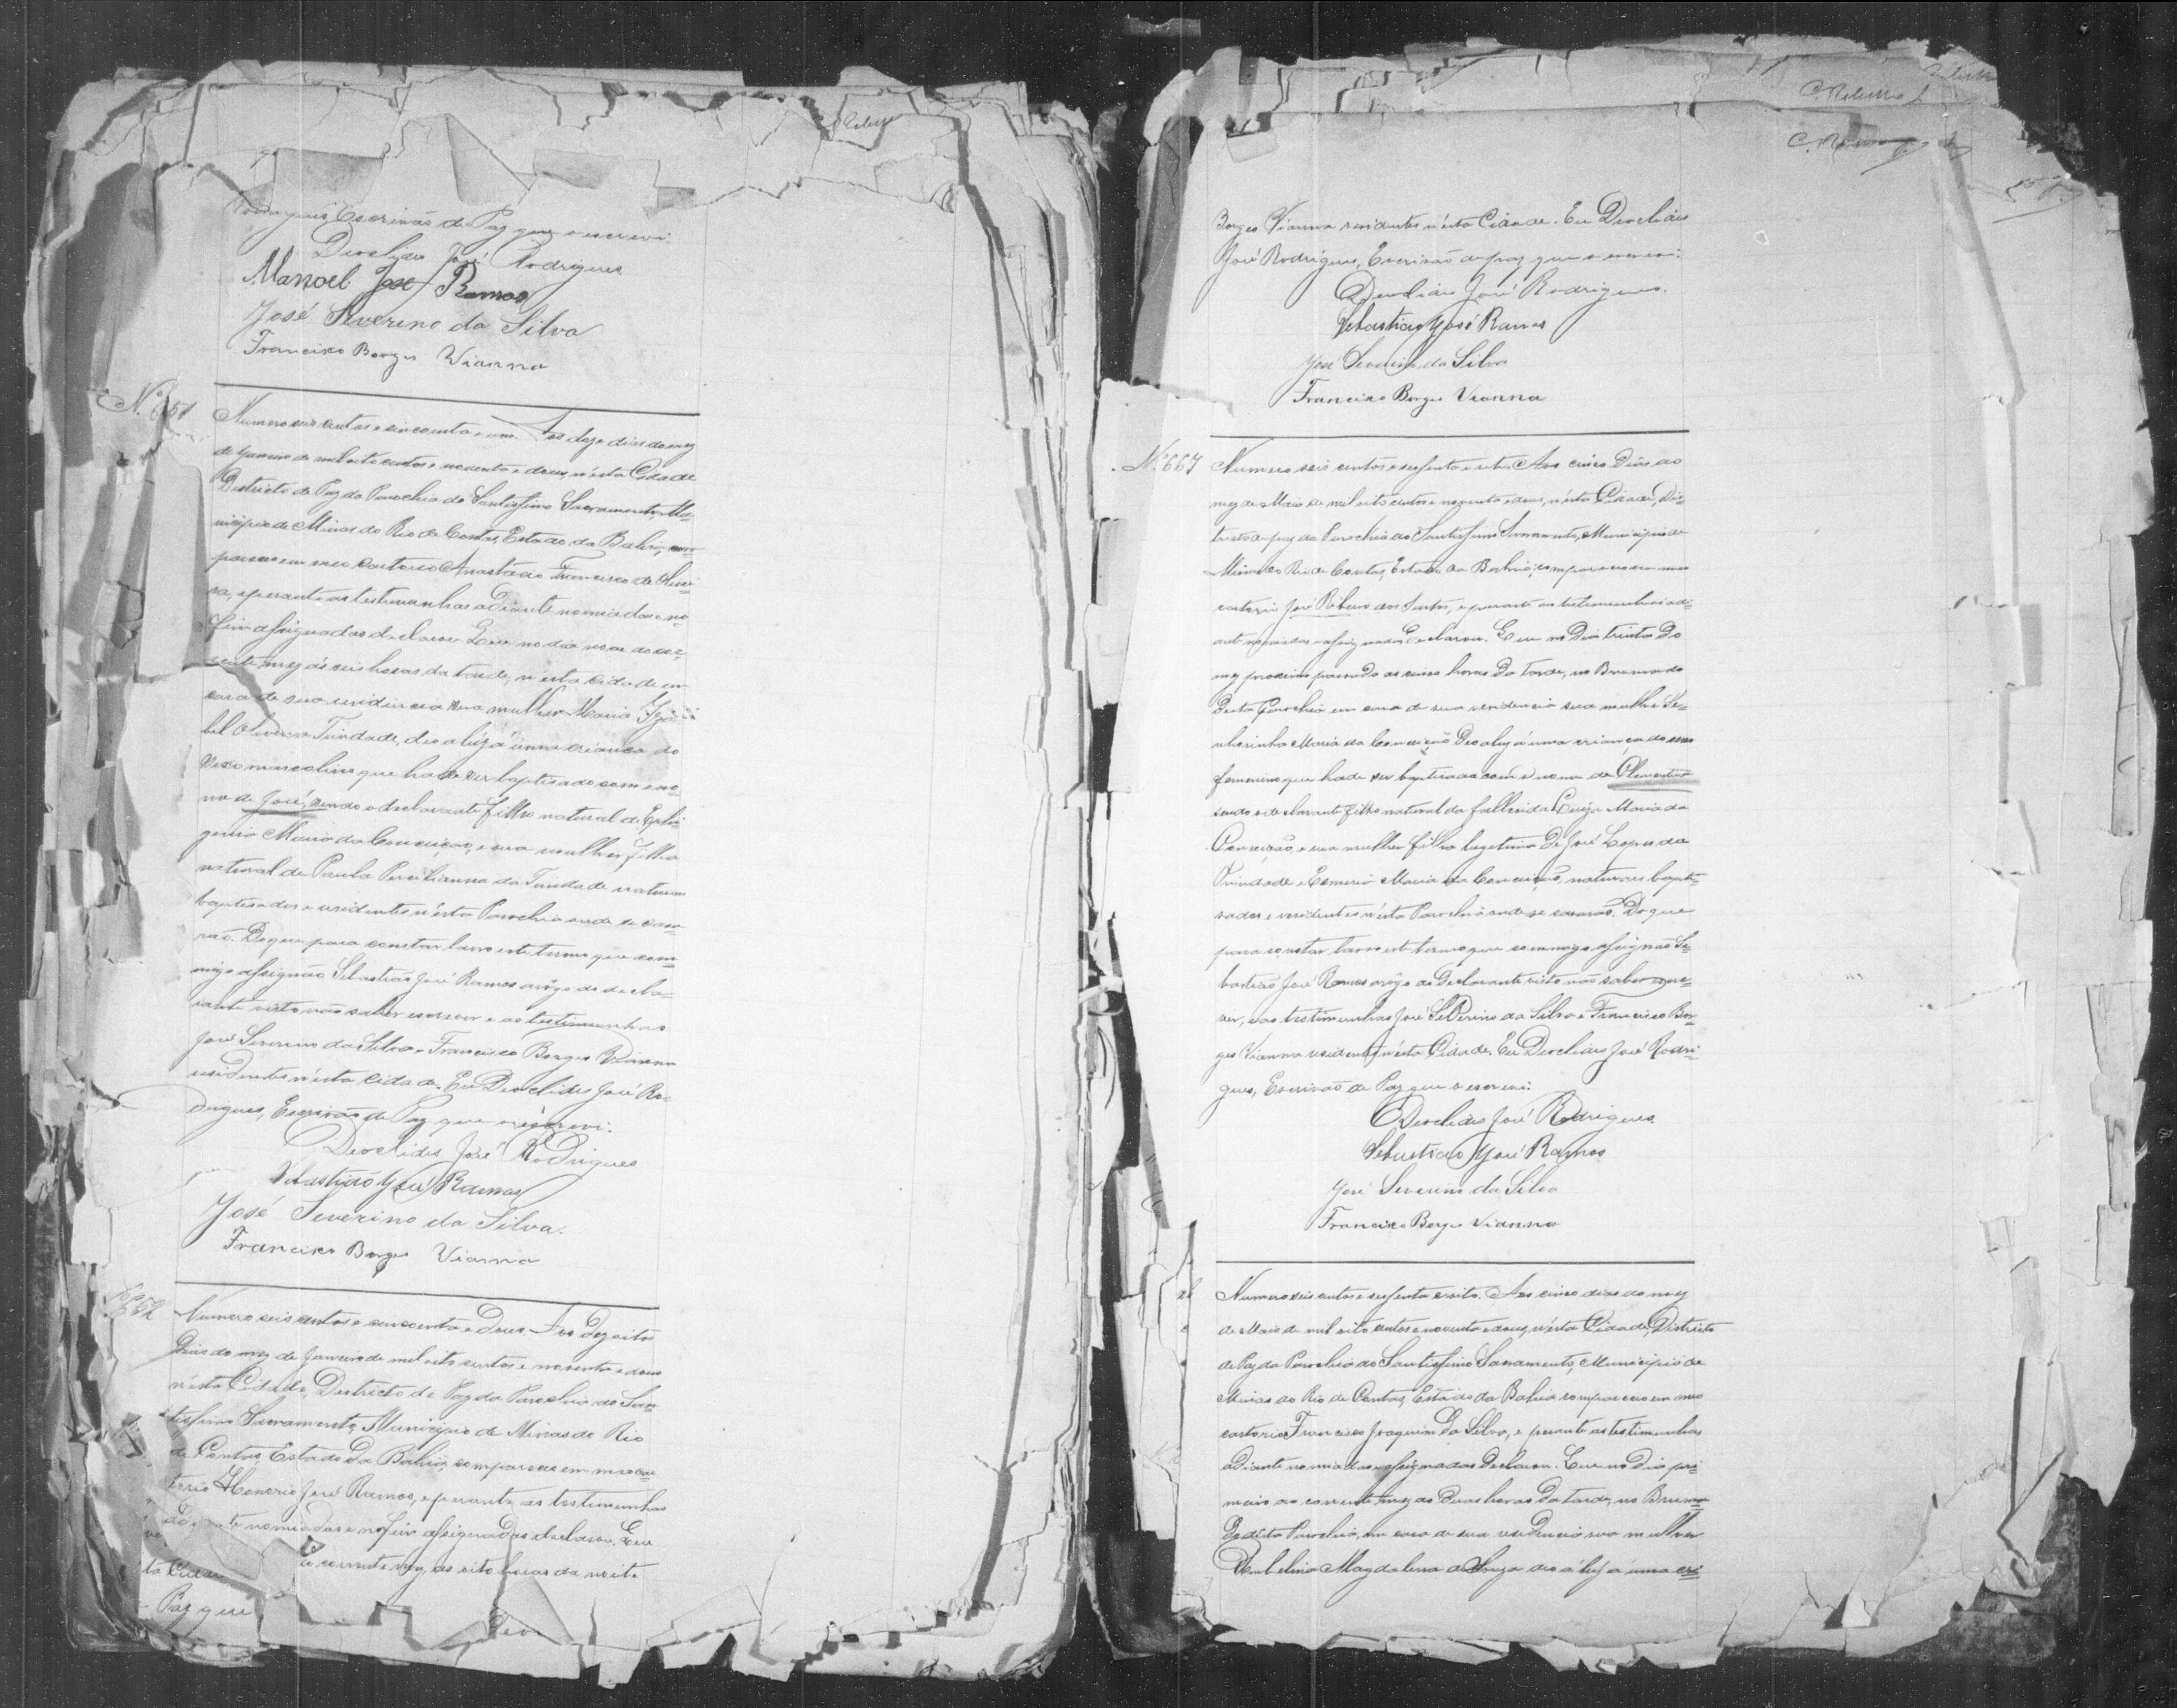 Rodrigues, Escrivão de Paz que o escrevi.
Deoclides José Rodrigues
Manoel José Ramos
José Severino da Silva
Francisco Borges Vianna
Nº 651
Numero seis centos e cincoenta e um. Aos doze dias do mez
de Janeiro de mil oito centos e noventa e dous, n'esta Cidade
Districto de Paz da Parochia do Santissimo Sacramento, Mu-
nicipio de Minas do Rio de Contas, Estado da Bahia, com-
pareceo em meo cartorio Anastacio Francisco de Olivei-
ra, e perante as testemunhas adiante nomeadas e no
fim assignadas declarou: Que no dia nove do cor-
rente mez ás seis horas da tarde, n'esta cidade em
casa de sua residencia sua mulher Maria Iza-
bel Oliveira Trindade, deo a luz á uma criança do
sexo masculino que ha de ser baptisado com o no-
me de José, sendo o declarante filho natural de Ephi-
genia Maria da Conceição, e sua mulher filha
natural de Paula Percilianna da Trindade naturaes
baptisados e residentes n'esta Parochia onde se casa-
rão. Do que para constar lavro este termo que com-
migo assignão Sebastião José Ramos arôgo do decla-
rante visto não saber escrever e as testemunhas
José Severino da Silva e Francisco Borges Vianna
residentes n'esta Cidade. Eu Deoclides José Ro-
drigues, Escrivão de Paz que o escrevi.
Deoclides José Rodrigues
Sebastião José Ramos
José Severino da Silva.
Francisco Borges Vianna
Nº 652
Numero seis centos e cincoenta e Dous. Aos Dezoito
Dias do mez de Janeiro de mil oito centos e noventa e dous
n'esta Cidade, Districto de Paz da Parochia do San-
tissimo Sacramento, Municipio de Minas do Rio
de Contas, Estado da Bahia, compareceo em meo car-
torio Honorio José Ramos, e perante as testemunhas
adiante nomeadas e no fim assignadas declarou: Que
do corrente mez, as oito horas da noite
ta Cidade
Paz que
Deo
Borges Vianna residentes n'esta Cidade. Eu Deoclides
José Rodrigues, Escrivão de paz que o escrevi.
Deoclides José Rodrigues.
Sebastião José Ramos
José Severino da Silva
Francisco Borges Vianna
Nº 667
Numero seis centos e sessenta e sete. Aos cinco Dias do
mez de Maio de mil oito centos e noventa e dous, n'esta Cidade, Dis-
tricto de paz da Parochia do Santissimo Sacramento, Municipio de
Minas do Rio de Contas, Estado da Bahia, compareceo em meo
cartorio José Ribeiro dos Santos, e perante as testemunhas adi-
ante nomeadas e assignadas Declarou: Que no Dia trinta Do
mez proximo passado as cinco horas Da tarde, no Brumado
Desta Parochia em casa de sua residencia sua mulher Se-
nhorinha Maria da Conceição Deo a luz á uma criança do sexo
femenino que hade ser baptisada com o nome de Clementina
sendo o declarante filho natural da fallecida Luiza Maria da
Conceição, e sua mulher filha legitima De José Lopes da
Trindade e Esmeria Maria da Conceição, naturaes bapti-
sados e residentes n'esta Parochia onde se casarão. Do que
para constar lavro este termo que commigo assignão Se-
bastião José Ramos arôgo do Declarante visto não saber escre-
ver, e as testemunhas José Severino da Silva e Francisco Bor-
ges Vianna residentes n'esta Cidade. Eu Deoclides José Rodri-
gues, Escrivão de Paz que o escrevi.
Deoclides José Rodrigues.
Sebastião José Ramos
José Severino da Silva
Francisco Borges Vianna
Numero seis centos e sessenta e oito. Aos cinco dias do mez
de Maio de mil oito centos e noventa e dous, n'esta Cidade, Districto
de Paz da Parochia do Santissimo Sacramento, Municipio de
Minas do Rio de Contas, Estado da Bahia compareceo em meo
cartorio Francisco Joaquim Da Silva, e perante as testemunhas
adiante nomeadas e assignadas Declarou: Que no Dia pri-
meiro do corrente mez as Duas horas Da tarde, no Bruma-
Do d'esta Parochia, em casa de sua residencia sua mulher
Umbelina Magdalena de Souza deo á luz á uma cri-